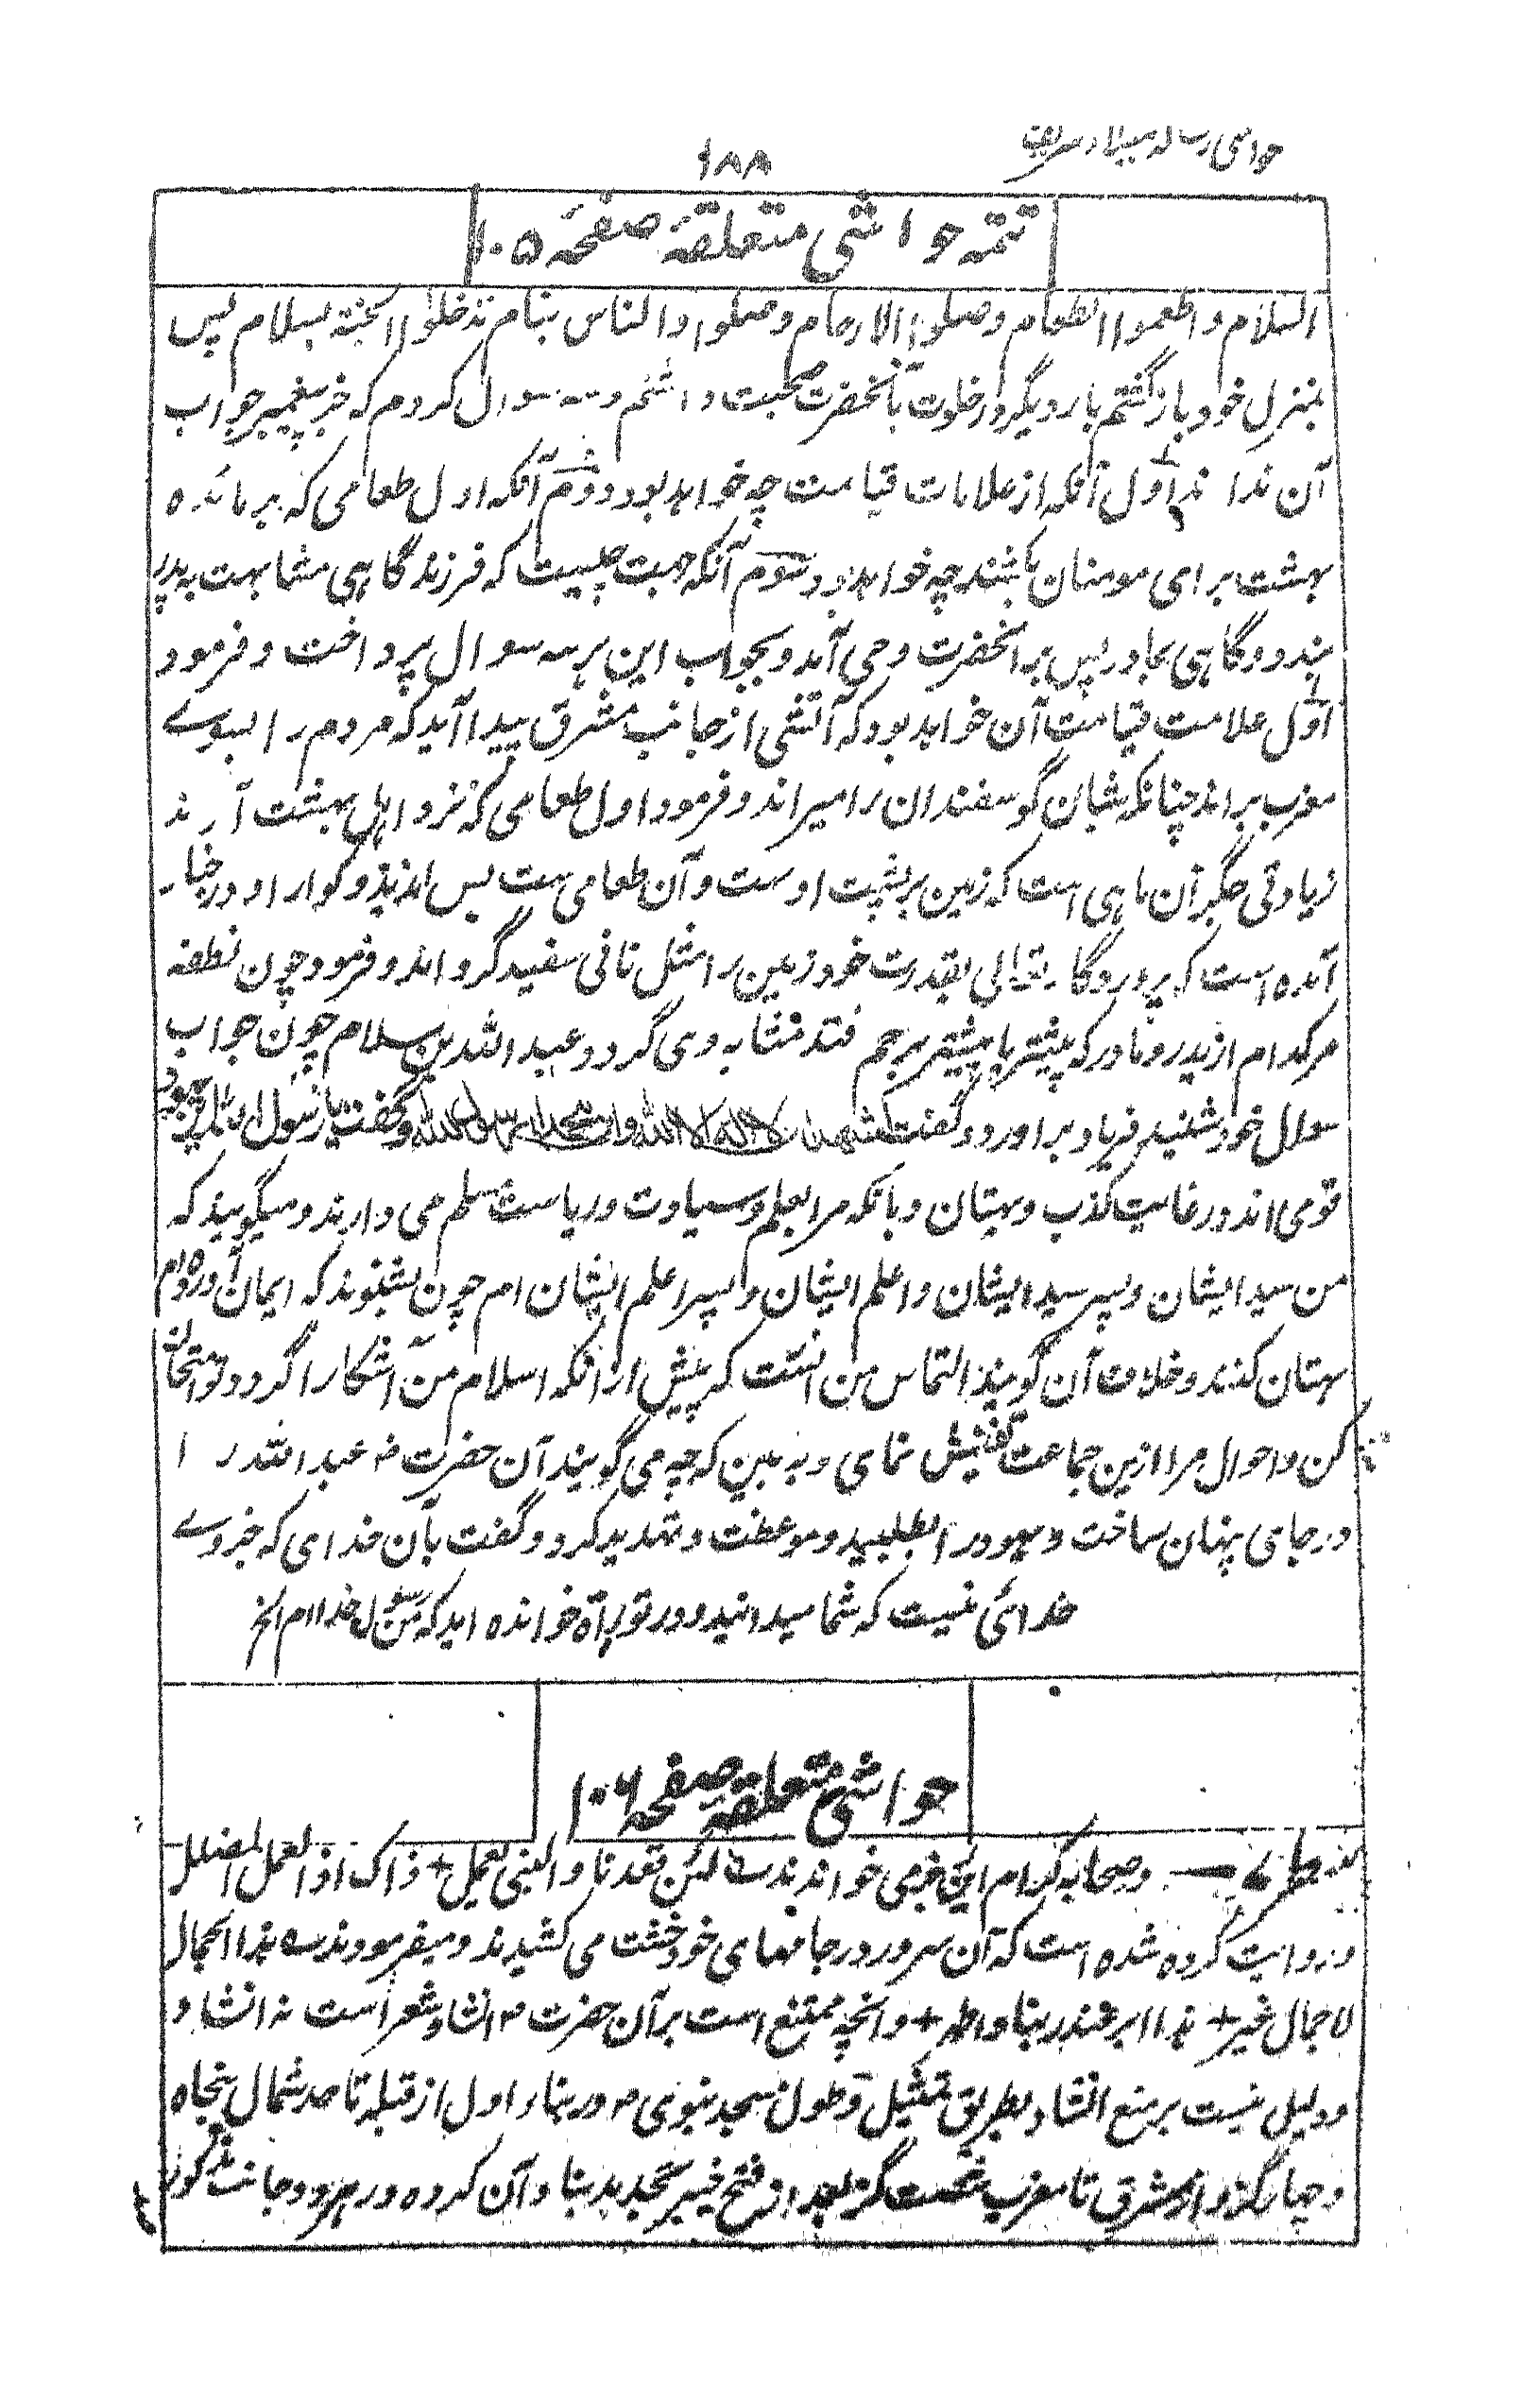 حواشی رساله میلاد شریف
۱۸۸
تتمه حواشی متعلقهٔ صفحهٔ ۱۰۵
السلام و اطعموا الطعام وصلوا الارحام وصلوا والناس نیام تدخلوا الجنة بسلام پس
بمنزل خود بازگشتم بار دیگر در خلوت بآنحضرت صحبت داشتم وسه سوال کردم که جز پیغمبر جواب
آن نداند اول آنکه از علامات قیامت چه خواهد بود دوم آنکه اول طعامی که بر مائده
بهشت برای مومنان باشند چه خواهد بود سوم آنکه جهت چیست که فرزند گاهی مشابهت به پدر
بندد و گاهی بمادر پس بر آنحضرت وحی آمد و بجواب این هر سه سوال پرداخت و فرمود
اول علامت قیامت آن خواهد بود که آتشی از جانب مشرق پیدا آید که مردم را بسوے
مغرب براند چنانکه شبان گوسفندان را میراند و فرمود اول طعامی که نزد اهل بهشت آرند
زیادتی جگر آن ماهی است که زمین بر پشت اوست و آن طعامی ست بس لذیذ و گوارا و در اخبار
آمده است که پروردگار تعالی بقدرت خود زمین را مثل نانی سفید گرداند و فرمود چون نطفه
هر کدام از پدر و مادر که پیشتر یا بیشتر برحم فتد مشابه وی گردد عبد الله بن سلام چون جواب
سوال خود شنید فریاد برآورد و گفت اشهد ان لا اله الا الله وان محمدا رسول الله و گفت یا رسول الله یهود
قومی اند در غایت کذب و بهتان و بآنکه مرا بعلم و سیادت و ریاست مسلم می دارند و میگویند که
من سید ایشان و پسر سید ایشان و اعلم ایشان و پسر اعلم ایشان ام چون بشنوند که ایمان آورده ام
بهتان کنند و خلاف آن گویند التماس من آنست که پیش از آنکه اسلام من آشکارا گردد تو امتحان
کن و احوال مرا ازین جماعت تفتیش نمای و به بین که چه می گویند آن حضرت ص عبد الله را
در جای پنهان ساخت و یهود را بطلبید و موعظت و تهدید کرد و گفت بآن خدای که جز وے
خدائی نیست که شما میدانید و در توراة خوانده اید که من رسول خدا ام الخ
حواشی متعلقهٔ صفحه ۱۰۶
و صحابه کرام این رجز می خواندند لئن قعدنا والنبی یعمل + ذاک اذا العمل المضلل
و روایت کرده شده است که آن سرور در جامهای خود خشت می کشیدند و میفرمودند هذا الحمال
لا حمال خیبر + هذا ابر ربنا واطهر + و آنچه ممتنع است بر آن حضرت ص انشاء شعر است نه انشاد
و دلیل نیست بر منع انشاد بطریق تمثیل و طول مسجد نبوی ص در بناء اول از قبله تا حد شمال پنجاه
و چهار گز و از مشرق تا مغرب شصت گز بعد از فتح خیبر تجدید بنا و آن کرده در هر دو جانب